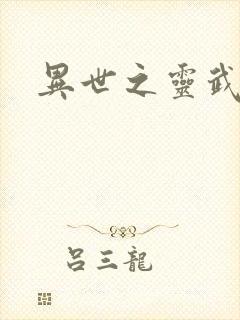 異世之靈武
吕三龍